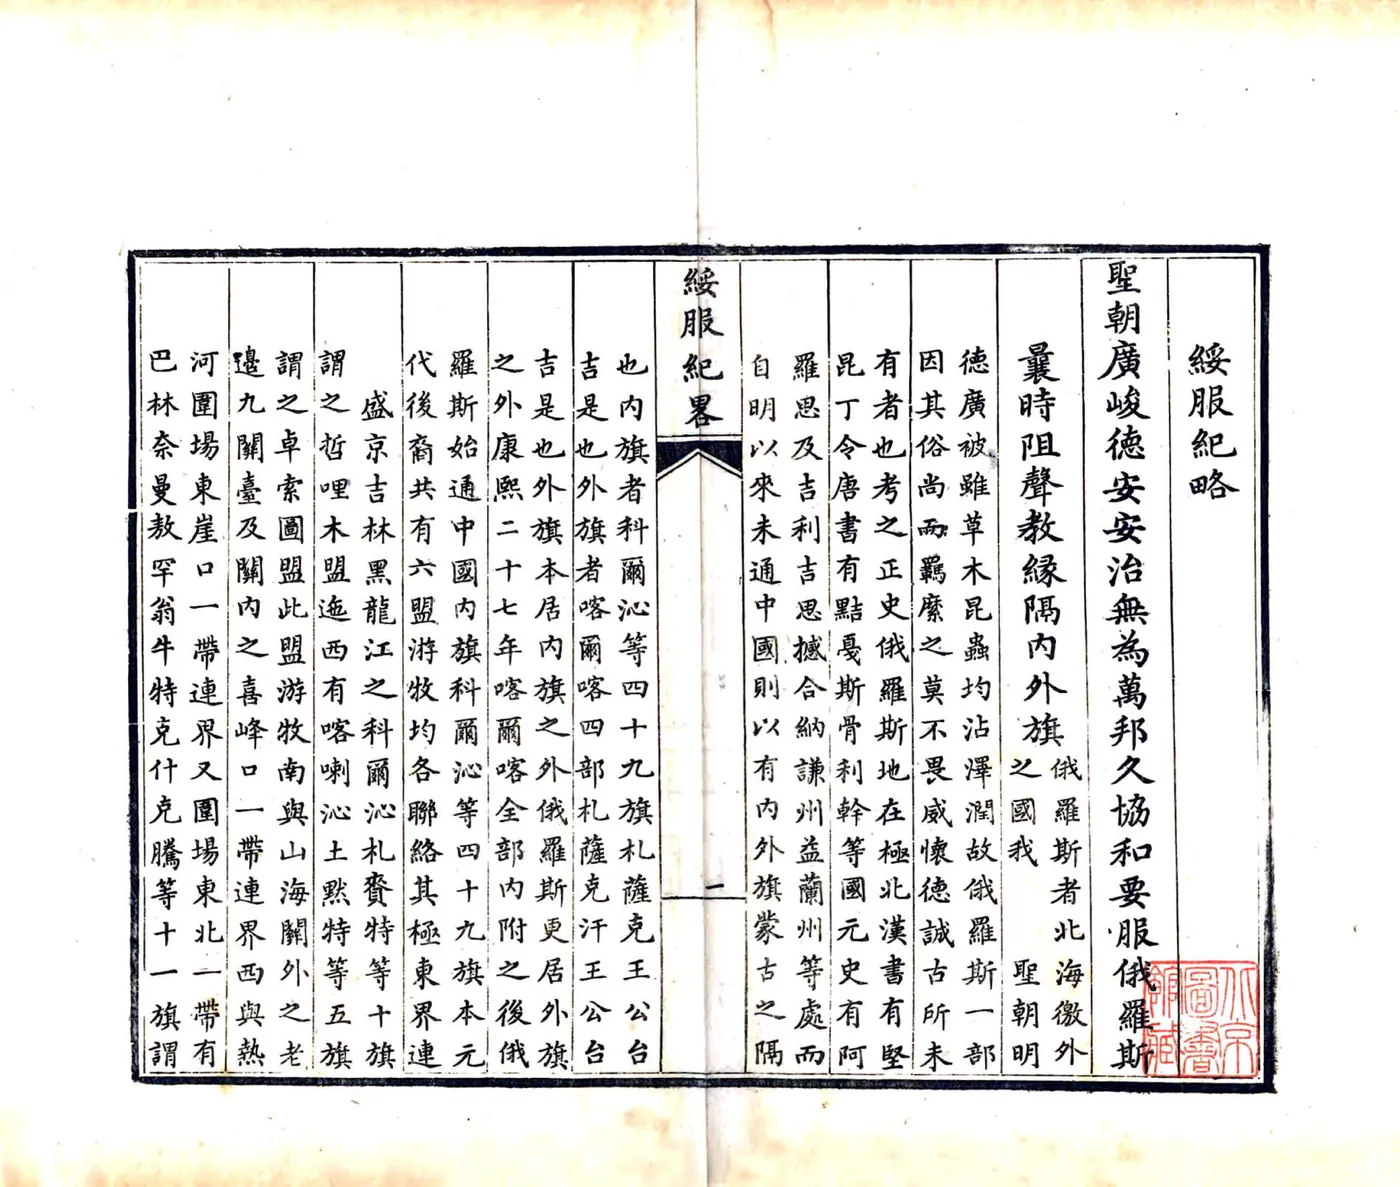 綏服紀略
聖朝廣峻德安安治無為萬邦久協和要服俄羅斯
曩時阻聲教緣隔內外旗
俄羅斯者北海徼外
之國我 聖朝明
德廣被雖草木昆蟲均沾澤潤故俄羅斯一部
因其俗尚而羈縻之莫不畏威懷德誠古所未
有者也考之正史俄羅斯地在極北漢書有堅
昆丁令唐書有黠戞斯骨利幹等國元史有阿
羅思及吉利吉思撼合納謙州益蘭州等處而
自明以來未通中國則以有內外旗蒙古之隔
綏服紀畧
一
也內旗者科爾沁等四十九旗札薩克王公台
吉是也外旗者喀爾喀四部札薩克汗王公台
吉是也外旗本居內旗之外俄羅斯更居外旗
之外康熙二十七年喀爾喀全部內附之後俄
羅斯始通中國內旗科爾沁等四十九旗本元
代後裔共有六盟游牧均各聯絡其極東界連
盛京吉林黑龍江之科爾沁札賚特等十旗
謂之哲哩木盟迤西有喀喇沁土默特等五旗
謂之卓索圖盟此盟游牧南與山海關外之老
邊九關臺及關內之喜峰口一帶連界西與熱
河圍場東崖口一帶連界又圍場東北一帶有
巴林奈曼敖罕翁牛特克什克騰等十一旗謂
北京
圖書
館藏